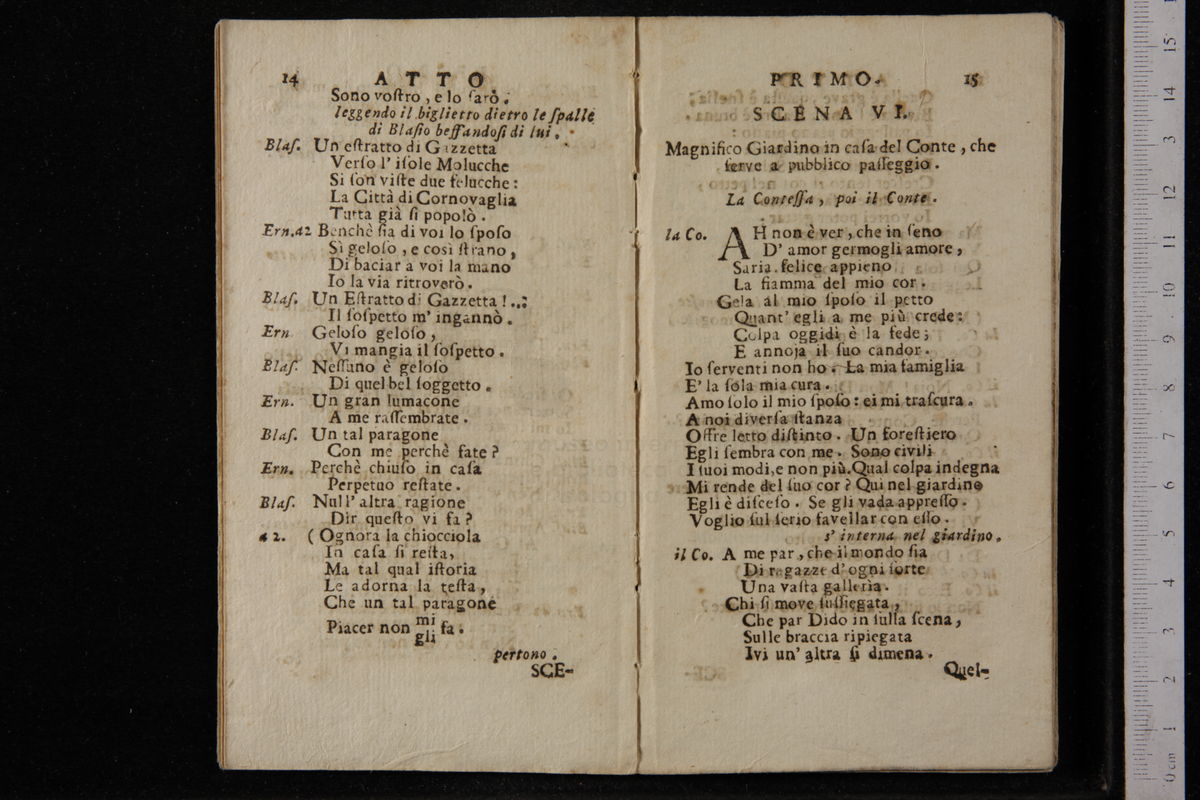 14 ATTO
Sono voſtro, e lo ſarò.
leggendo il biglietto dietro le ſpalle
di Blaſio beffandoſi di lui.
Blaſ. Un eſtratto di Gazzetta
Verſo l' iſole Molucche
Si ſon viſte due felucche:
La Città di Cornovaglia
Tutta già ſi popolò.
Ern.a2 Benchè ſia di voi lo ſpoſo
Sì geloſo, e così ſtrano,
Di baciar a voi la mano
Io la via ritroverò.
Blaſ. Un Eſtratto di Gazzetta!...
Il ſoſpetto m' ingannò.
Ern Geloſo geloſo,
Vi mangia il ſoſpetto.
Blaſ. Neſſuno è geloſo
Di quel bel ſoggetto.
Ern. Un gran lumacone
A me raſſembrate.
Blaſ. Un tal paragone
Con me perchè fate?
Ern. Perchè chiuſo in caſa
Perpetuo reſtate.
Blaſ. Null' altra ragione
Dir queſto vi fa?
a 2. (Ognora la chiocciola
In caſa ſi reſta,
Ma tal qual iſtoria
Le adorna la teſta,
Che un tal paragone
Piacer non mi fa.
gli
partono.
SCE-
PRIMO. 15
SCENA VI.
Magnifico Giardino in caſa del Conte, che
ſerve a pubblico paſſeggio.
La Conteſſa, poi il Conte.
la Co. AH non è ver, che in ſeno
D' amor germogli amore,
Saria felice appieno
La fiamma del mio cor.
Gela al mio ſpoſo il petto
Quant' egli a me più crede:
Colpa oggidì è la fede;
E annoja il ſuo candor.
Io ſerventi non ho. La mia famiglia
E' la ſola mia cura.
Amo ſolo il mio ſpoſo: ei mi traſcura.
A noi diverſa ſtanza
Offre letto diſtinto. Un foreſtiero
Egli ſembra con me. Sono civili
I ſuoi modi,e non più.Qual colpa indegna
Mi rende del ſuo cor? Qui nel giardino
Egli è diſceſo. Se gli vada appreſſo.
Voglio ſul ſerio favellar con eſſo.
s' interna nel giardino.
il Co. A me par, che il mondo ſia
Di ragazze d' ogni ſorte
Una vaſta galleria.
Chi ſi move ſuſſiegata,
Che par Dido in ſulla ſcena,
Sulle braccia ripiegata
Ivi un' altra ſi dimena.
Quel-
0 cm 1 2 3 4 5 6 7 8 9 10 11 12 13 14 15